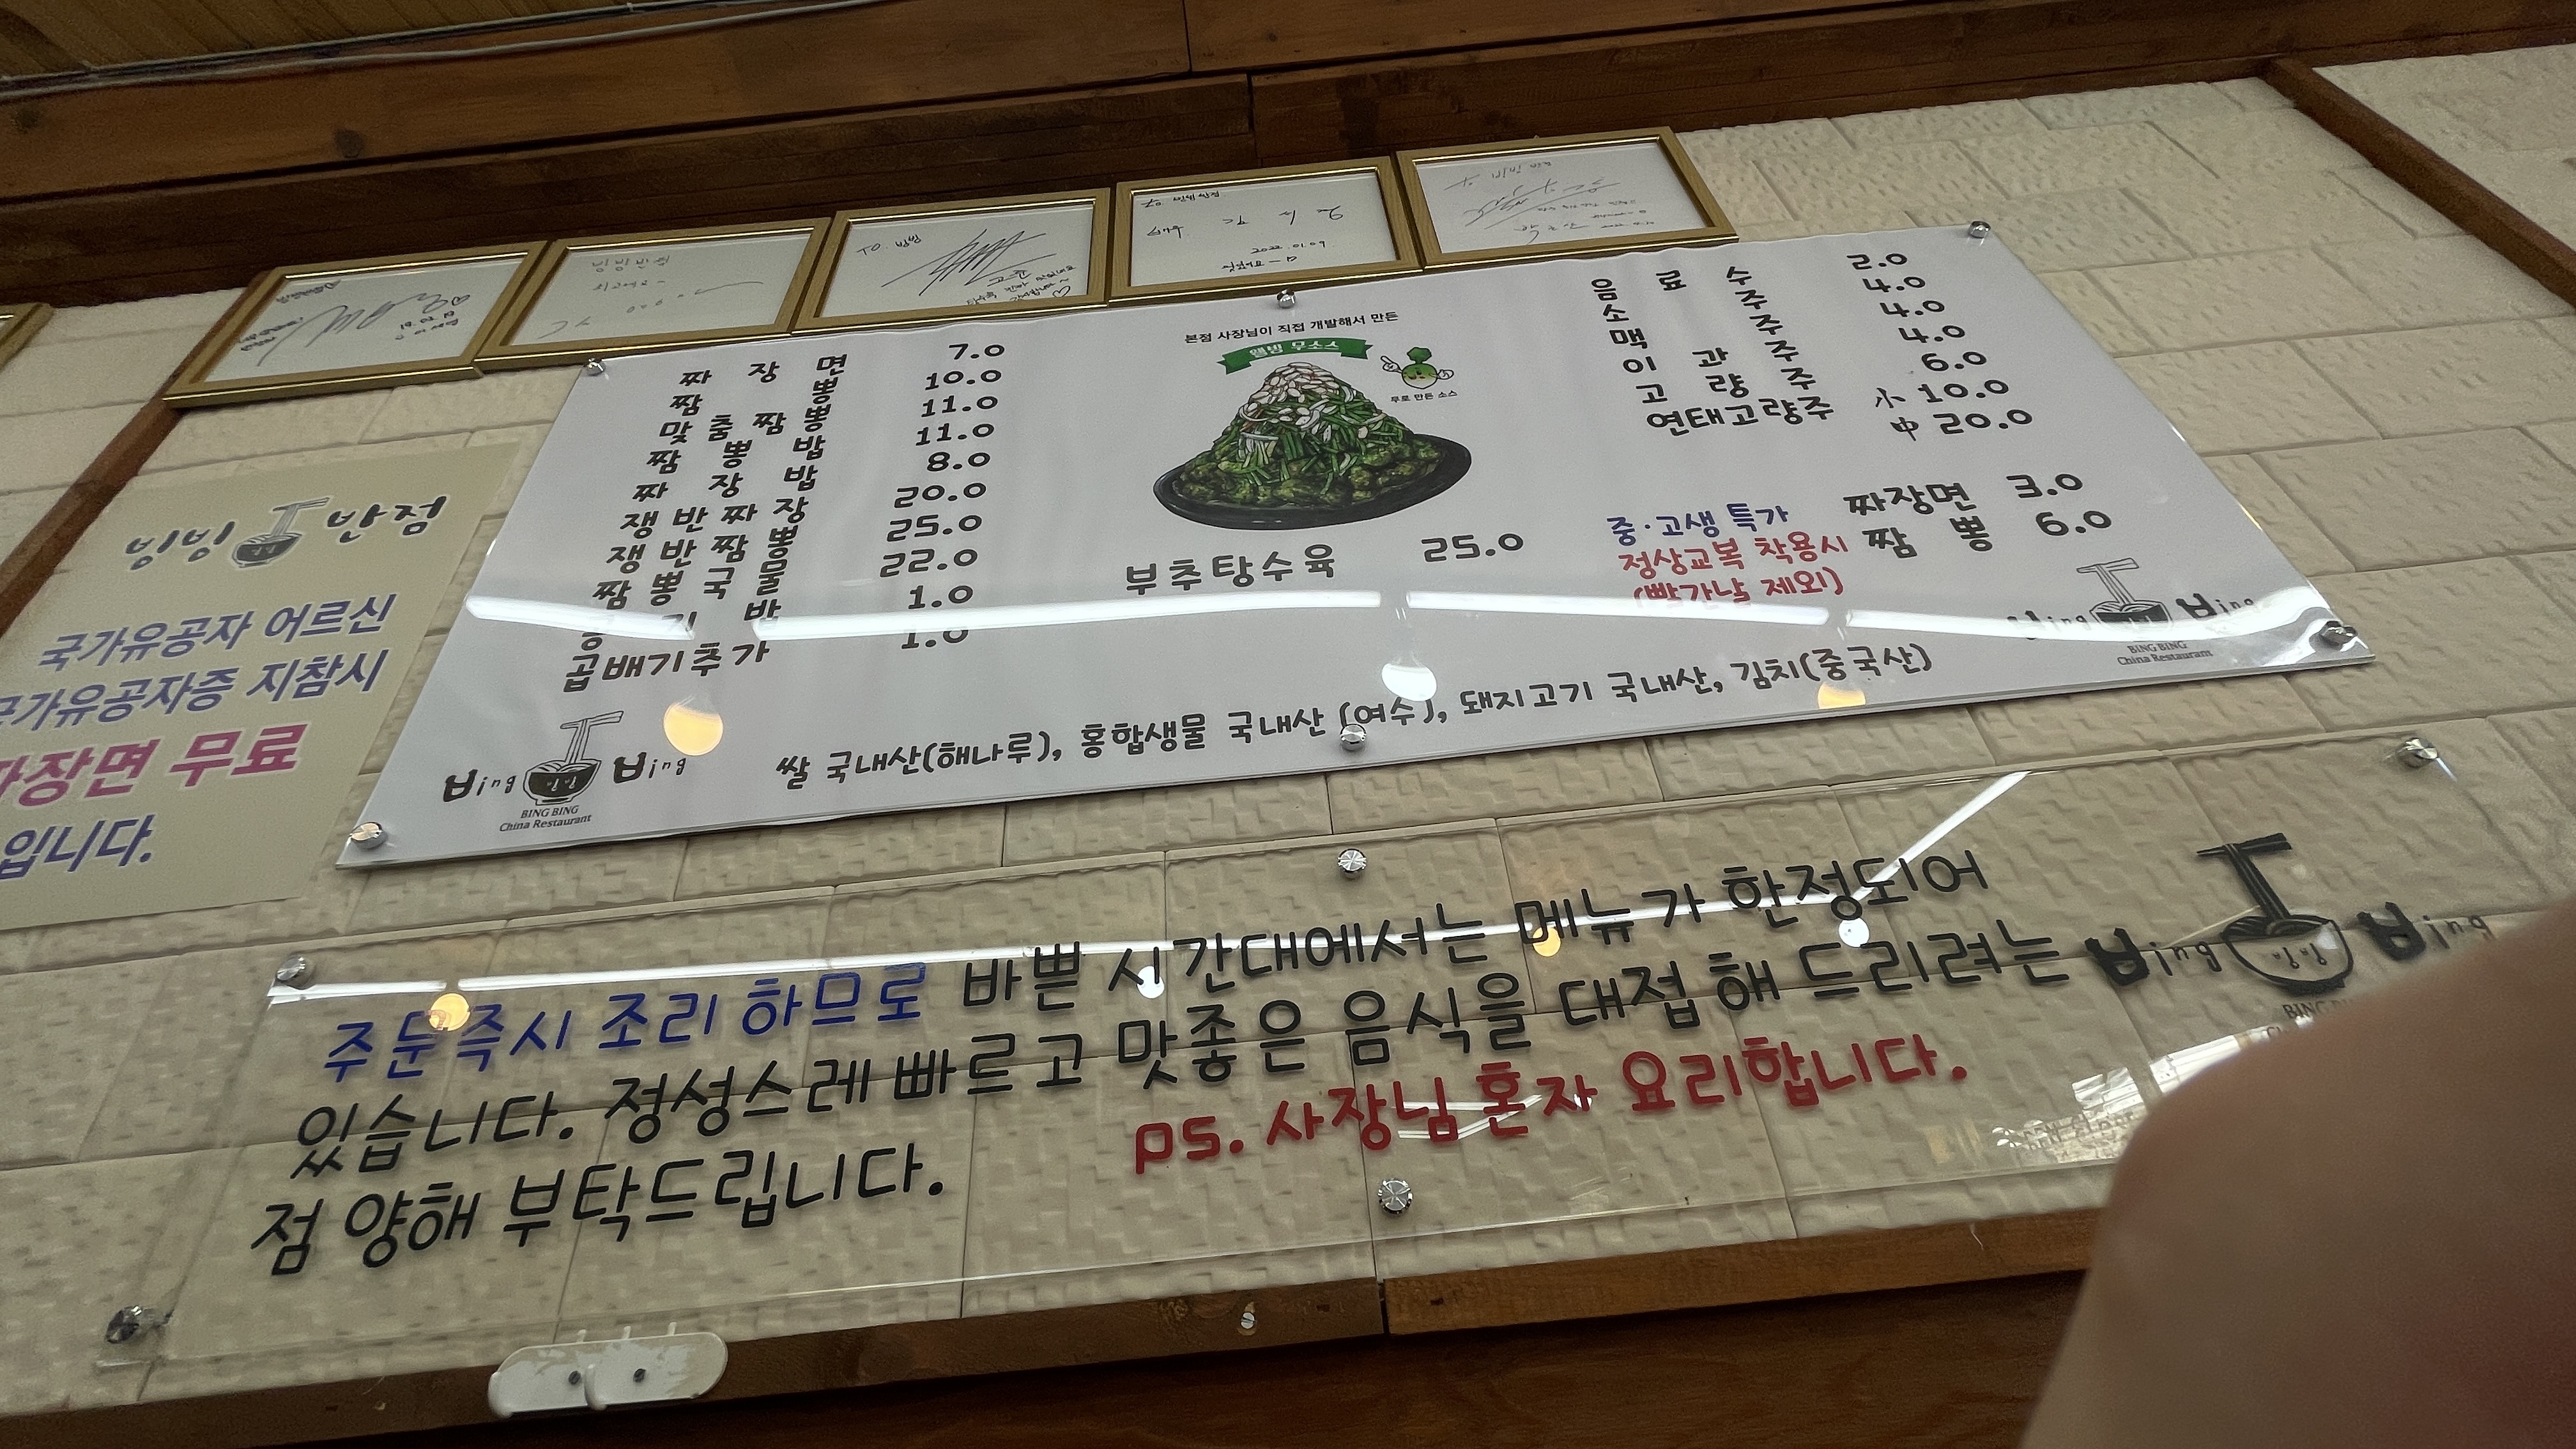 빙빙반점
최고예요~
TO. 빙빙
2022.01.09
본점 사장님이 직접 개발해서 만든
웰빙 무소스
무로 만든 소스
짜장면 7.0
짬뽕 10.0
맞춤짬뽕 11.0
짬뽕밥 11.0
짜장밥 8.0
쟁반짜장 20.0
쟁반짬뽕 25.0
짬뽕국물 22.0
1.0
곱배기추가 1.0
부추탕수육 25.0
음료수 2.0
소주 4.0
맥주 4.0
이과주 4.0
고량주 6.0
연태고량주 小 10.0
中 20.0
중·고생 특가 짜장면 3.0
정상교복 착용시 짬뽕 6.0
(빨간날 제외)
쌀 국내산(해나루), 홍합생물 국내산 (여수), 돼지고기 국내산, 김치(중국산)
Bing 빙빙 Bing
BING BING
China Restaurant
Bing Bing
BING BING
China Restaurant
빙빙 반점
국가유공자 어르신
국가유공자증 지참시
짜장면 무료
입니다.
주문즉시 조리 하므로 바쁜 시간대에서는 메뉴가 한정되어
있습니다. 정성스레 빠르고 맛좋은 음식을 대접 해 드리려는
점 양해 부탁드립니다. ps. 사장님 혼자 요리합니다.
Bing 빙빙 Bing